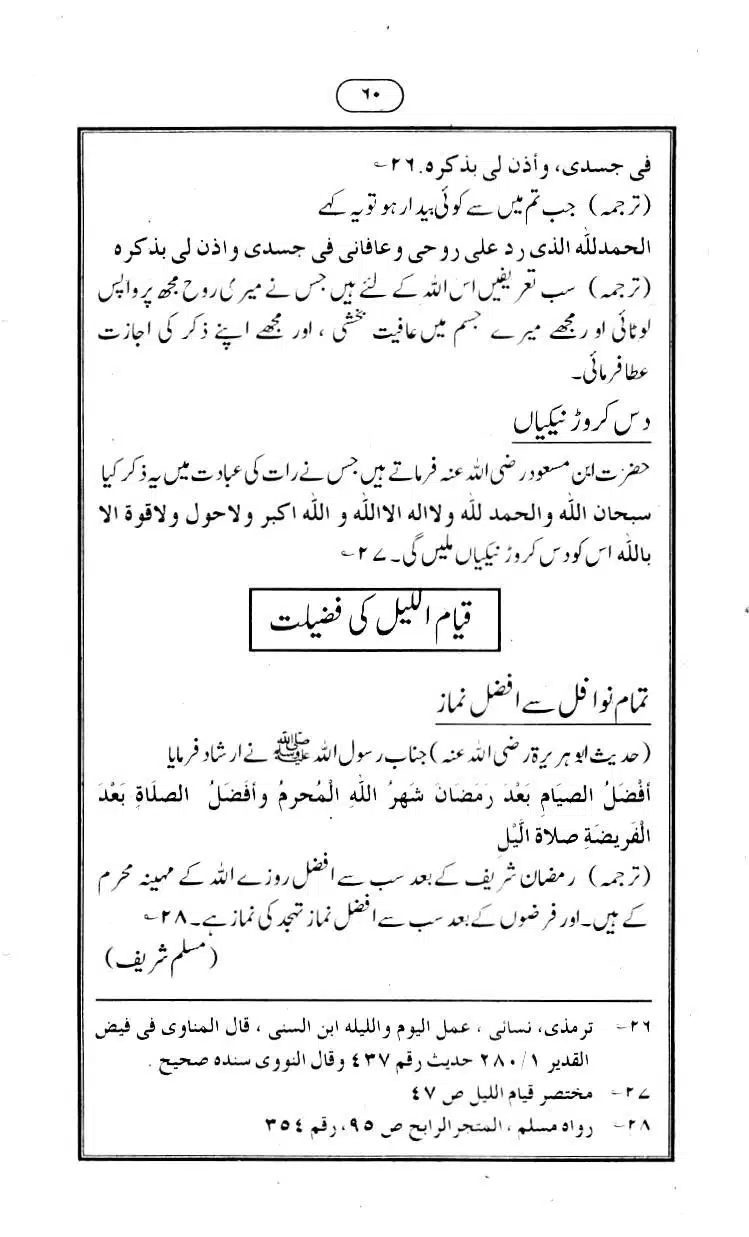 ٦٠
فی جسدی، وأذن لی بذکره. ٢٦؎
(ترجمہ) جب تم میں سے کوئی بیدار ہو تو یہ کہے
الحمدللّٰہ الذی رد علی روحی وعافانی فی جسدی واذن لی بذکرہ
(ترجمہ) سب تعریفیں اس اللہ کے لئے ہیں جس نے میری روح مجھ پر واپس
لوٹائی اور مجھے میرے جسم میں عافیت بخشی ، اور مجھے اپنے ذکر کی اجازت
عطا فرمائی۔
دس کروڑ نیکیاں
حضرت ابن مسعود رضی اللہ عنہ فرماتے ہیں جس نے رات کی عبادت میں یہ ذکر کیا
سبحان اللّٰه والحمد للّٰه ولااله الااللّٰه و اللّٰه اکبر ولاحول ولاقوة الا
باللّٰه اس کو دس کروڑ نیکیاں ملیں گی۔ ٢٧؎
قیام اللیل کی فضیلت
تمام نوافل سے افضل نماز
(حدیث ابوہریرۃ رضی اللہ عنہ) جناب رسول اللہ ﷺ نے ارشاد فرمایا
أَفْضَلُ الصیَامِ بَعْدَ رَمَضَانَ شَهرُ اللّٰهِ الْمُحرمُ وأفَضَلُ الصلَاةِ بَعْدَ
الْفَرِیضَةِ صلاة الَّیْلِ
(ترجمہ) رمضان شریف کے بعد سب سے افضل روزے اللہ کے مہینہ محرم
کے ہیں۔ اور فرضوں کے بعد سب سے افضل نماز تہجد کی نماز ہے۔ ٢٨؎
(مسلم شریف)
٢٦؎ ترمذی، نسائی ، عمل الیوم واللیله ابن السنی ، قال المناوی فی فیض
القدیر ١/ ٢٨٠ حدیث رقم ٤٣٧ وقال النووی سنده صحیح .
٢٧؎ مختصر قیام اللیل ص ٤٧
٢٨؎ رواه مسلم ، المتجر الرابح ص ٩٥، رقم ٣٥٤